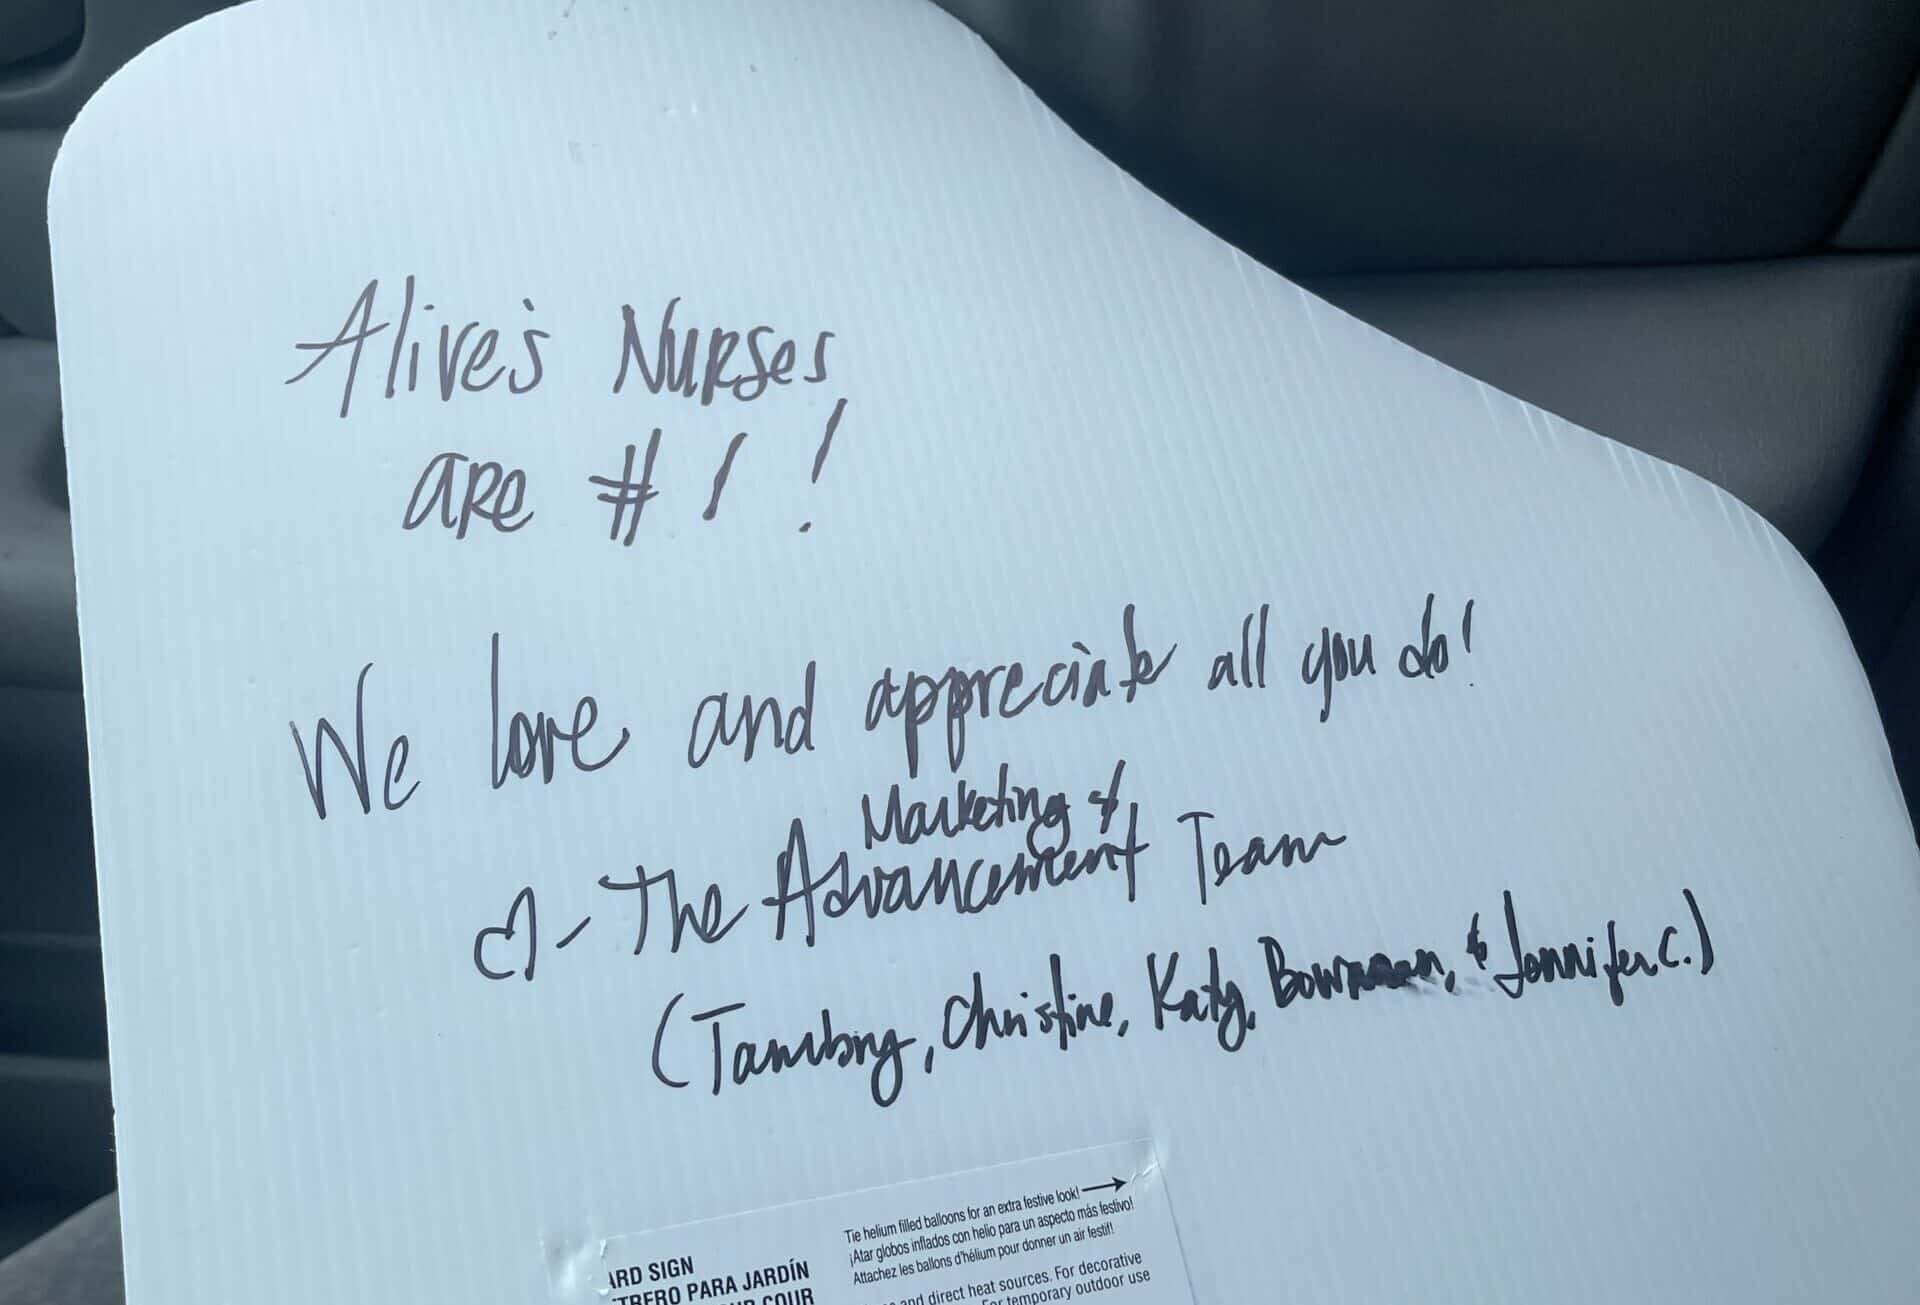 Alive's Nurses
are #1!
We love and appreciate all you do!
Marketing &
♡- The Advancement Team
(Tambry, Christine, Katy, Bowman, & Jennifer C.)
Tie helium filled balloons for an extra festive look! →
¡Atar globos inflados con helio para un aspecto más festivo!
Attachez les ballons d'hélium pour donner un air festif!
ARD SIGN
TRERO PARA JARDÍN
UR COUR
and direct heat sources. For decorative
For temporary outdoor use